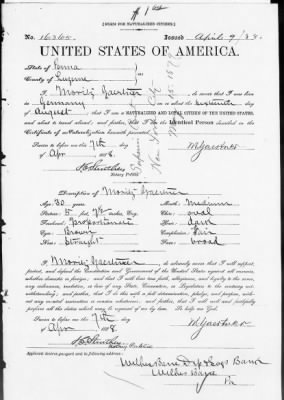 [FORM FOR NATURALIZED CITIZEN.]
No. 16365. Issued April 9/88.
UNITED STATES OF AMERICA.
State of Penna
County of Luzerne
I Moritz Gaertner, do swear that I was born
in Germany on or about the sixteenth day of
August, that I am a NATURALIZED AND LOYAL CITIZEN OF THE UNITED STATES,
and about to travel abroad; and further, that I am the Identical Person described in the
Certificate of Naturalization herewith presented.
Sworn to before me this 7th day
of Apr 1888. M Gaertner
Notary Public
Description of Moritz Gaertner
Age: 30 years Mouth: Medium
Stature: 5 feet, inches, Eng. Chin: oval
Forehead: Proportionate Hair: dark
Eyes: Brown Complexion: Fair
Nose: Straight Face: broad
I Moritz Gaertner, do solemnly swear that I will support,
protect, and defend the Constitution and Government of the United States against all enemies,
whether domestic or foreign; and that I will bear true faith, allegiance, and loyalty to the same,
any ordinance, resolution, or law of any State, Convention, or Legislature to the contrary not-
withstanding; and further, that I do this with a full determination, pledge, and purpose, with-
out any mental reservation or evasion whatsoever; and further, that I will well and faithfully
perform all the duties which may be required of me by law. So help me God.
Sworn to before me this 7th day
of Apr 1888. M Gaertner
Notary Public
Applicant desires passport sent to following address:
Wilkes Barre Dep & Savgs Bank
Wilkes Barre
Pa